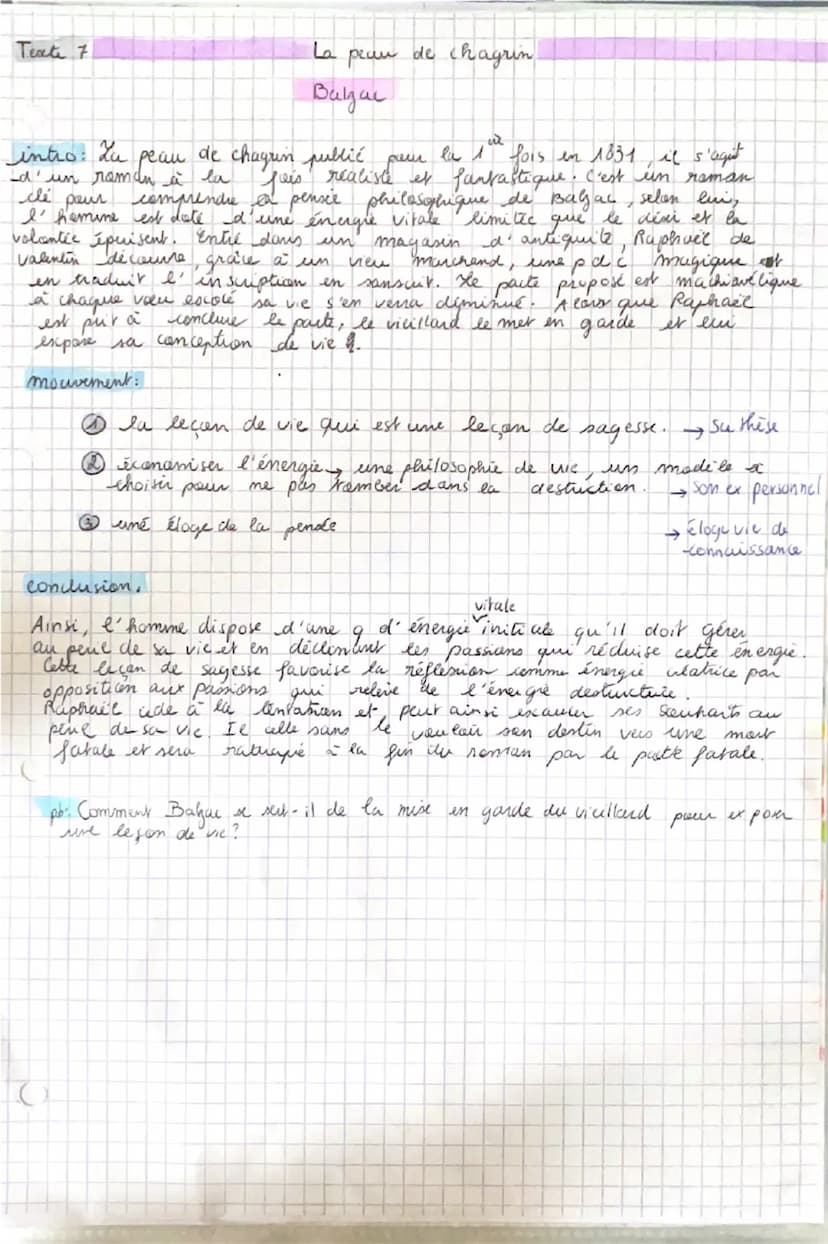 Texte 7 La peau de chagrin
Balzac
intro: La peau de chagrin publié pour la 1ère fois en 1831, il s'agit
d'un roman à la fois réaliste et fantastique. C'est un roman
clé pour comprendre la pensée philosophique de Balzac, selon lui,
l'homme est doté d'une énergie vitale limitée que le désir et la
volontée épuisent. Entré dans un magasin d'antiquité, Raphaël de
valentin découvre, grâce à un vieu marchand, une p d c magique et
en traduit l'inscription en sanscrit. Le pacte proposé est machiavélique
à chaque vœu sa vie s'en verra diminué. Alors que Raphaël
est à conclure le pacte, le vieillard le met en garde et lui
expose sa conception de vie
mouvement:
① la leçon de vie qui est une leçon de sagesse. → Sa thèse
② économiser l'énergie → une philosophie de vie, un modèle a
choisir pour ne pas tomber dans la destruction. → Son ex personnel
③ une éloge de la pensée
→ Éloge vie de
connaissance
conclusion.
vitale
Ainsi, l'homme dispose d'une q d'énergie initiale qu'il doit gérer
au péril de sa vie et en déclinant les passions qui réduise cette énergie.
Cette leçon de sagesse favorise la réflexion comme énergie créatrice par
opposition aux passions qui relève de l'énergie destructrice.
Raphaël cède à la tentation et peut ainsi exaucer ses souhaits au
péril de sa vie. Il celle sans le vouloir son destin vers une mort
fatale et sera rattrapé à la fin du roman par le pacte fatale.
pb: Comment Balzac se sert-il de la mise en garde du vieillard pour exposer
une leçon de vie?